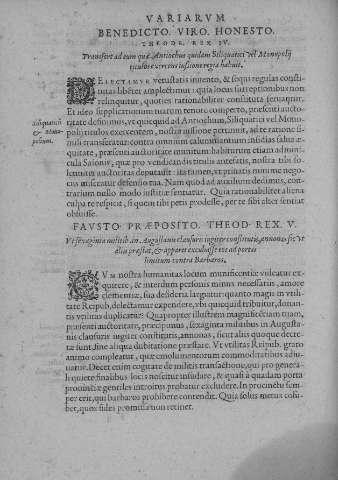 VARIARVM
BENEDICTO. VIRO. HONESTO.
THEODE. REX IV.
Transfert ad eum quæ Antiochus quidam Siliquatici vel Monopolij
titulos exercens iussione regia habuit.
DELECTAMUR vetustatis inuento, & sequi regulas constitutas
libẽter amplectimur: quia locus surreptionibus non
relinquitur, quoties rationabiliter constituta seruãtur.
Et ideo supplicationum tuarum tenore comperto, præsenti auctoritate
definimus, vt quicquid ad Antiochum, Siliquatici vel Monopolij
Siliquatici
& Monopolium.
titulos exercentem, nostra iussione pertinuit, ad te ratione simili
transferatur: contra omnium calumniantium insidias salua æquitate,
præsenti auctoritate munitum habiturum etiam adminicula
Saionis, quæ pro vendicandis titulis antefatis, nostra tibi solenniter
auctoritas deputauit: ita tamen, vt priuatis minime negocijs
misceatur defensio tua. Nam quod ad auxilium dedimus, contrarium
nullo modo iustitiæ sentiatur. Quia rationabiliter aliena
culpa te respicit, si quum tibi petis prodesse, per te sibi alter sentiat
obfuisse.
FAVSTO. PRÆPOSITO. THEOD REX. V.
Vt sexaginta militib. in Augustanis clausuris iugiter constitutis, annonas sic vt
alijs præstat, & apparet excubasse eos ad portas
limitum contra Barbaros.
CVM nostra humanitas locum munificentiæ videatur exquirere,
& interdum personis minus necessarijs, amore
clementiæ, sua desideria largiatur: quanto magis in vtilitate
Reipub. delectamur expendere, vbi quicquid tribuitur, donantis
vtilitas duplicatur? Quapropter illustrem magnificentiam tuam,
præsenti auctoritate, præcipimus, sexaginta militibus in Augustanis
clausuris iugiter constitutis, annonas, sicut alijs quoque decretæ
sunt, sine aliqua dubitatione præstare. Vt vtilitas Reipub. grato
animo compleatur, quæ emolumentorum commoditatibus adiuuatur.
Decet enim cogitare de militis transactione, qui pro generali
quiete finalibus locis noscitur insudare, & quasi à quadam porta
prouinciæ gentiles introitus probatur excludere. In procinctu semper
erit, qui barbaros prohibere contendit. Quia solus metus cohibet,
quos fides promissa non retinet.